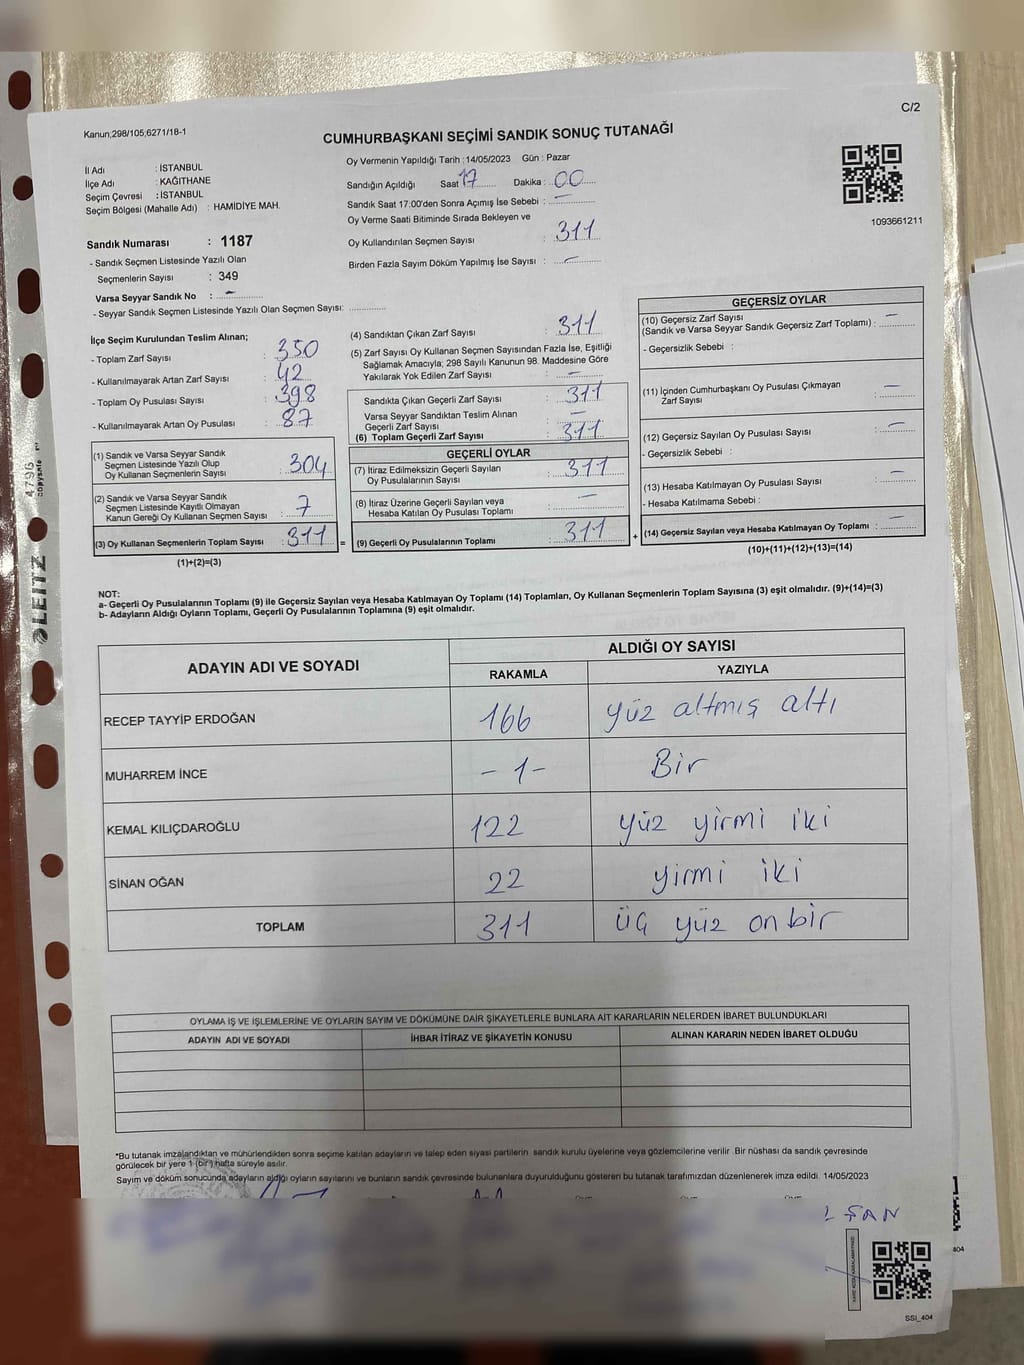 C/2
Kanun;298/105;6271/18-1
CUMHURBAŞKANI SEÇİMİ SANDIK SONUÇ TUTANAĞI
İl Adı : İSTANBUL
İlçe Adı : KAĞITHANE
Seçim Çevresi : İSTANBUL
Seçim Bölgesi (Mahalle Adı) : HAMİDİYE MAH.
Oy Vermenin Yapıldığı Tarih : 14/05/2023 Gün : Pazar
Sandığın Açıldığı Saat 17 Dakika : 00
Sandık Saat 17.00'den Sonra Açımış İse Sebebi : –
Oy Verme Saati Bitiminde Sırada Bekleyen ve
Oy Kullandırılan Seçmen Sayısı : 311
Birden Fazla Sayım Döküm Yapılmış İse Sayısı : –
1093661211
Sandık Numarası : 1187
- Sandık Seçmen Listesinde Yazılı Olan
Seçmenlerin Sayısı : 349
Varsa Seyyar Sandık No : –
- Seyyar Sandık Seçmen Listesinde Yazılı Olan Seçmen Sayısı:
İlçe Seçim Kurulundan Teslim Alınan;
- Toplam Zarf Sayısı : 350
- Kullanılmayarak Artan Zarf Sayısı : 42
- Toplam Oy Pusulası Sayısı : 398
- Kullanılmayarak Artan Oy Pusulası : 87
(1) Sandık ve Varsa Seyyar Sandık
Seçmen Listesinde Yazılı Olup
Oy Kullanan Seçmenlerin Sayısı : 304
(2) Sandık ve Varsa Seyyar Sandık
Seçmen Listesinde Kayıtlı Olmayan
Kanun Gereği Oy Kullanan Seçmen Sayısı : 7
(3) Oy Kullanan Seçmenlerin Toplam Sayısı : 311
(1)+(2)=(3)
(4) Sandıktan Çıkan Zarf Sayısı : 311
(5) Zarf Sayısı Oy Kullanan Seçmen Sayısından Fazla İse, Eşitliği
Sağlamak Amacıyla; 298 Sayılı Kanunun 98. Maddesine Göre
Yakılarak Yok Edilen Zarf Sayısı : –
Sandıkta Çıkan Geçerli Zarf Sayısı : 311
Varsa Seyyar Sandıktan Teslim Alınan
Geçerli Zarf Sayısı : –
(6) Toplam Geçerli Zarf Sayısı : 311
GEÇERLİ OYLAR
(7) İtiraz Edilmeksizin Geçerli Sayılan
Oy Pusulasının Sayısı : 311
(8) İtiraz Üzerine Geçerli Sayılan veya
Hesaba Katılan Oy Pusulası Toplamı : –
= (9) Geçerli Oy Pusulalarının Toplamı : 311 +
GEÇERSİZ OYLAR
(10) Geçersiz Zarf Sayısı
(Sandık ve Varsa Seyyar Sandık Geçersiz Zarf Toplamı) : –
- Geçersizlik Sebebi :
(11) İçinden Cumhurbaşkanı Oy Pusulası Çıkmayan
Zarf Sayısı : –
(12) Geçersiz Sayılan Oy Pusulası Sayısı : –
- Geçersizlik Sebebi :
(13) Hesaba Katılmayan Oy Pusulası Sayısı : –
- Hesaba Katılmama Sebebi :
(14) Geçersiz Sayılan veya Hesaba Katılmayan Oy Toplamı : –
(10)+(11)+(12)+(13)=(14)
NOT:
a- Geçerli Oy Pusulalarının Toplamı (9) ile Geçersiz Sayılan veya Hesaba Katılmayan Oy Toplamı (14) Toplamları, Oy Kullanan Seçmenlerin Toplam Sayısına (3) eşit olmalıdır. (9)+(14)=(3)
b- Adayların Aldığı Oyların Toplamı, Geçerli Oy Pusulalarının Toplamına (9) eşit olmalıdır.
ADAYIN ADI VE SOYADI ALDIĞI OY SAYISI
RAKAMLA YAZIYLA
RECEP TAYYİP ERDOĞAN 166 yüz altmış altı
MUHARREM İNCE -1- Bir
KEMAL KILIÇDAROĞLU 122 yüz yirmi iki
SİNAN OĞAN 22 yirmi iki
TOPLAM 311 üç yüz on bir
OYLAMA İŞ VE İŞLEMLERİNE VE OYLARIN SAYIM VE DÖKÜMÜNE DAİR ŞİKAYETLERLE BUNLARA AİT KARARLARIN NELERDEN İBARET BULUNDUKLARI
ADAYIN ADI VE SOYADI İHBAR İTİRAZ VE ŞİKAYETİN KONUSU ALINAN KARARIN NEDEN İBARET OLDUĞU
*Bu tutanak imzalandıktan ve mühürlendikten sonra seçime katılan adayların ve talep eden siyasi partilerin sandık kurulu üyelerine veya gözlemcilerine verilir .Bir nüshası da sandık çevresinde
görülecek bir yere 1 (bir) hafta süreyle asılır.
Sayım ve döküm sonucunda adayların aldığı oyların sayılarını ve bunların sandık çevresinde bulunanlara duyurulduğunu gösteren bu tutanak tarafımızdan düzenlenerek imza edildi. 14/05/2023
ŞAN
SSI_404
404
LEITZ
4796
copysafe